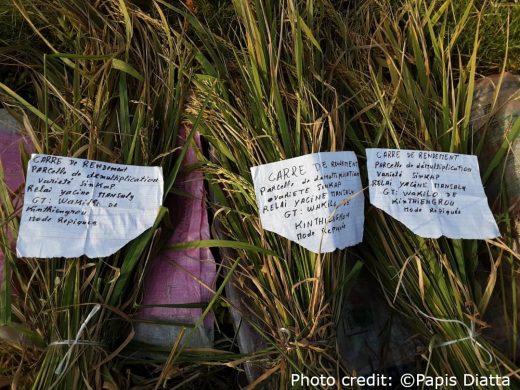 CARRE DE RENDEMENT
PARCELLE de démultiplication
Variété SINKAP
Relai YACINE MANSALY
GT: WAKILO DE
KINTHIENGROU
Mode Repiquée
CARRE DE RENDEMENT
PARCELLE de démultiplication
VARIETE SINKAP
RELAI YACINE MANSALY
GT: WAKILO DE
KINTHIENGROU
Mode Repiquée
CARRE DE RENDEMENT
PARCELLE de démultiplication
Variété SINKAP
RELAI YACINE MANSALY
GT: WAKILO DE
KINTHIENGROU
Mode Repiqué
Photo credit: ©Papis Diatta